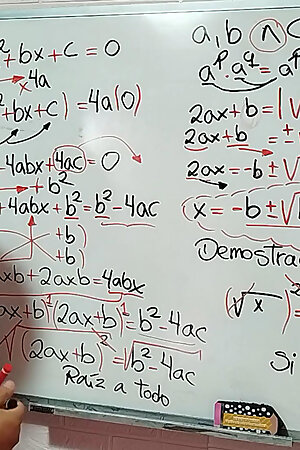 ² + bx + C = 0
x 4a
²+bx+C) = 4a(0)
4abx + 4ac = 0
+ b²
+ 4abx + b² = b² - 4ac
+b)
+b)
axb + 2axb = 4abx
ax+b)¹ (2ax+b)¹ = b² - 4ac
√(2ax+b)² = √b² - 4ac
Raíz a todo
a, b ∧ C
aᵖ · a^q = aᵖ
2ax + b = |√
2ax + b = ±√
2ax = -b ± √
x = -b ± √b
Demostra
(√x)² =
Si